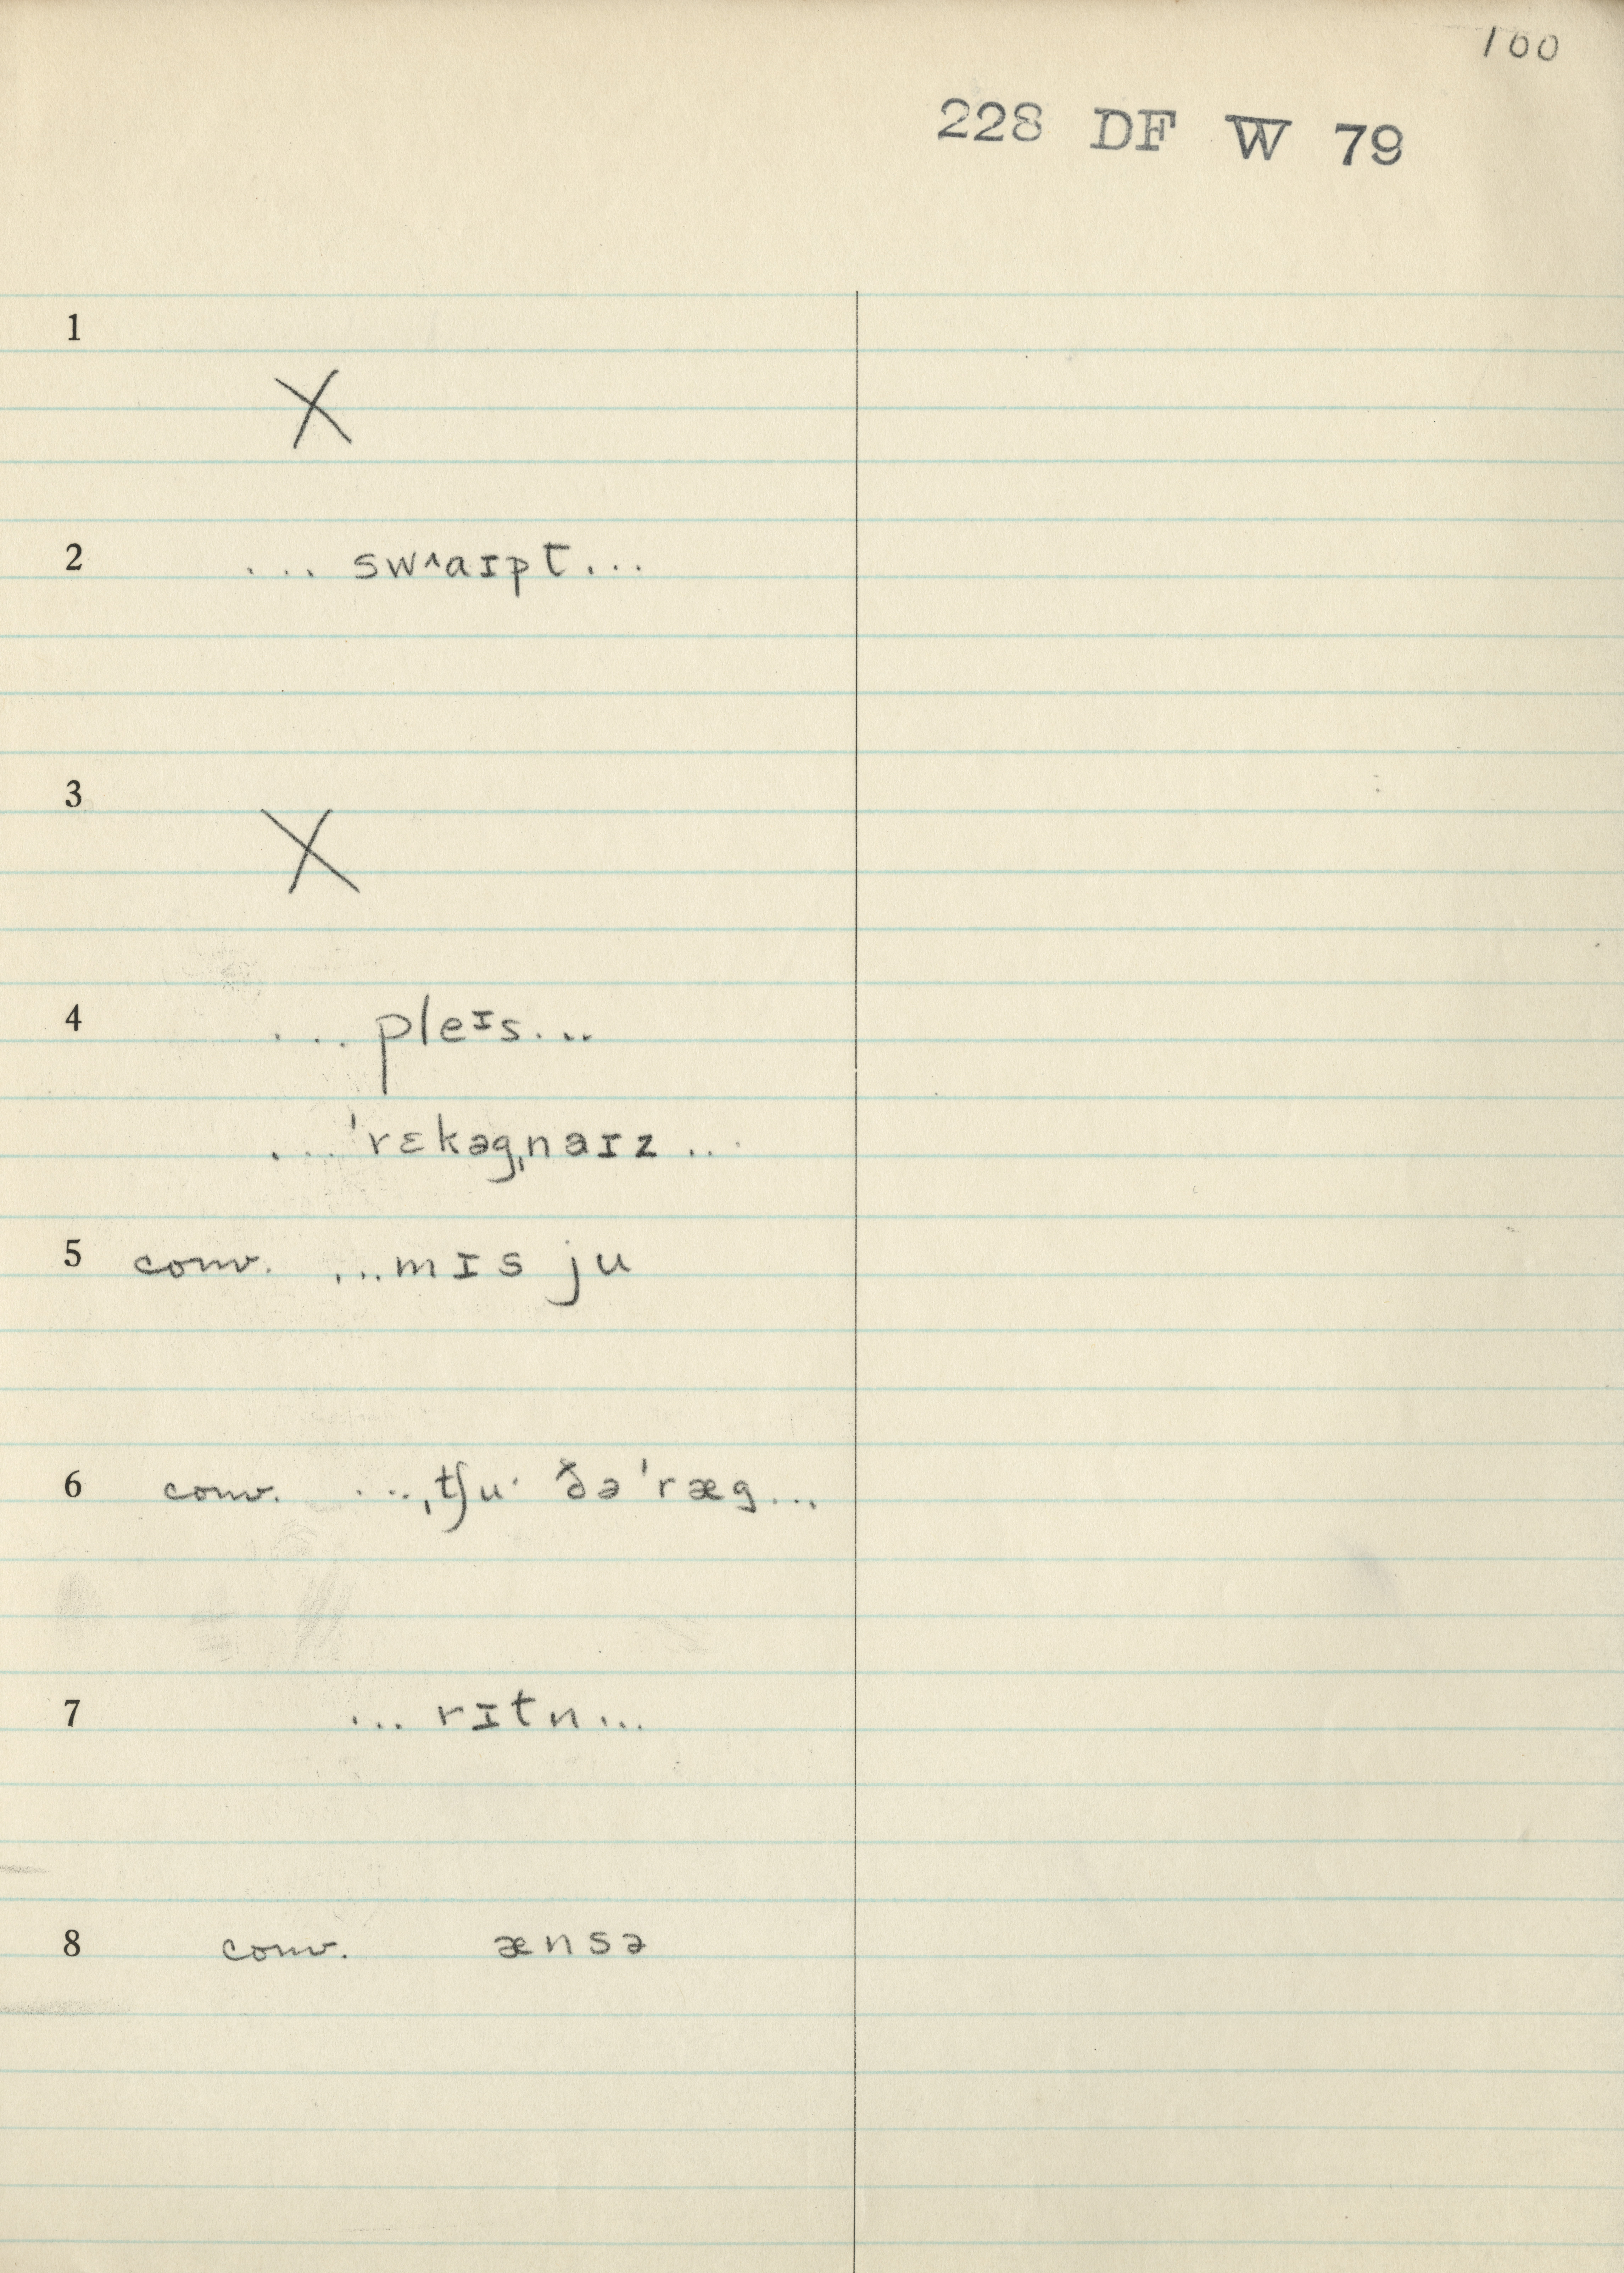 100
228 DF W 79
1
X
2 ... swˆaɪpt...
3
X
4 ... pleɪs...
... 'rɛkəgˌnaɪz ...
5 conv. ...mɪs ju
6 conv. ...ˌtʃuˑ ðə 'ræg...
7 ... rɪtn...
8 conv. ænsə